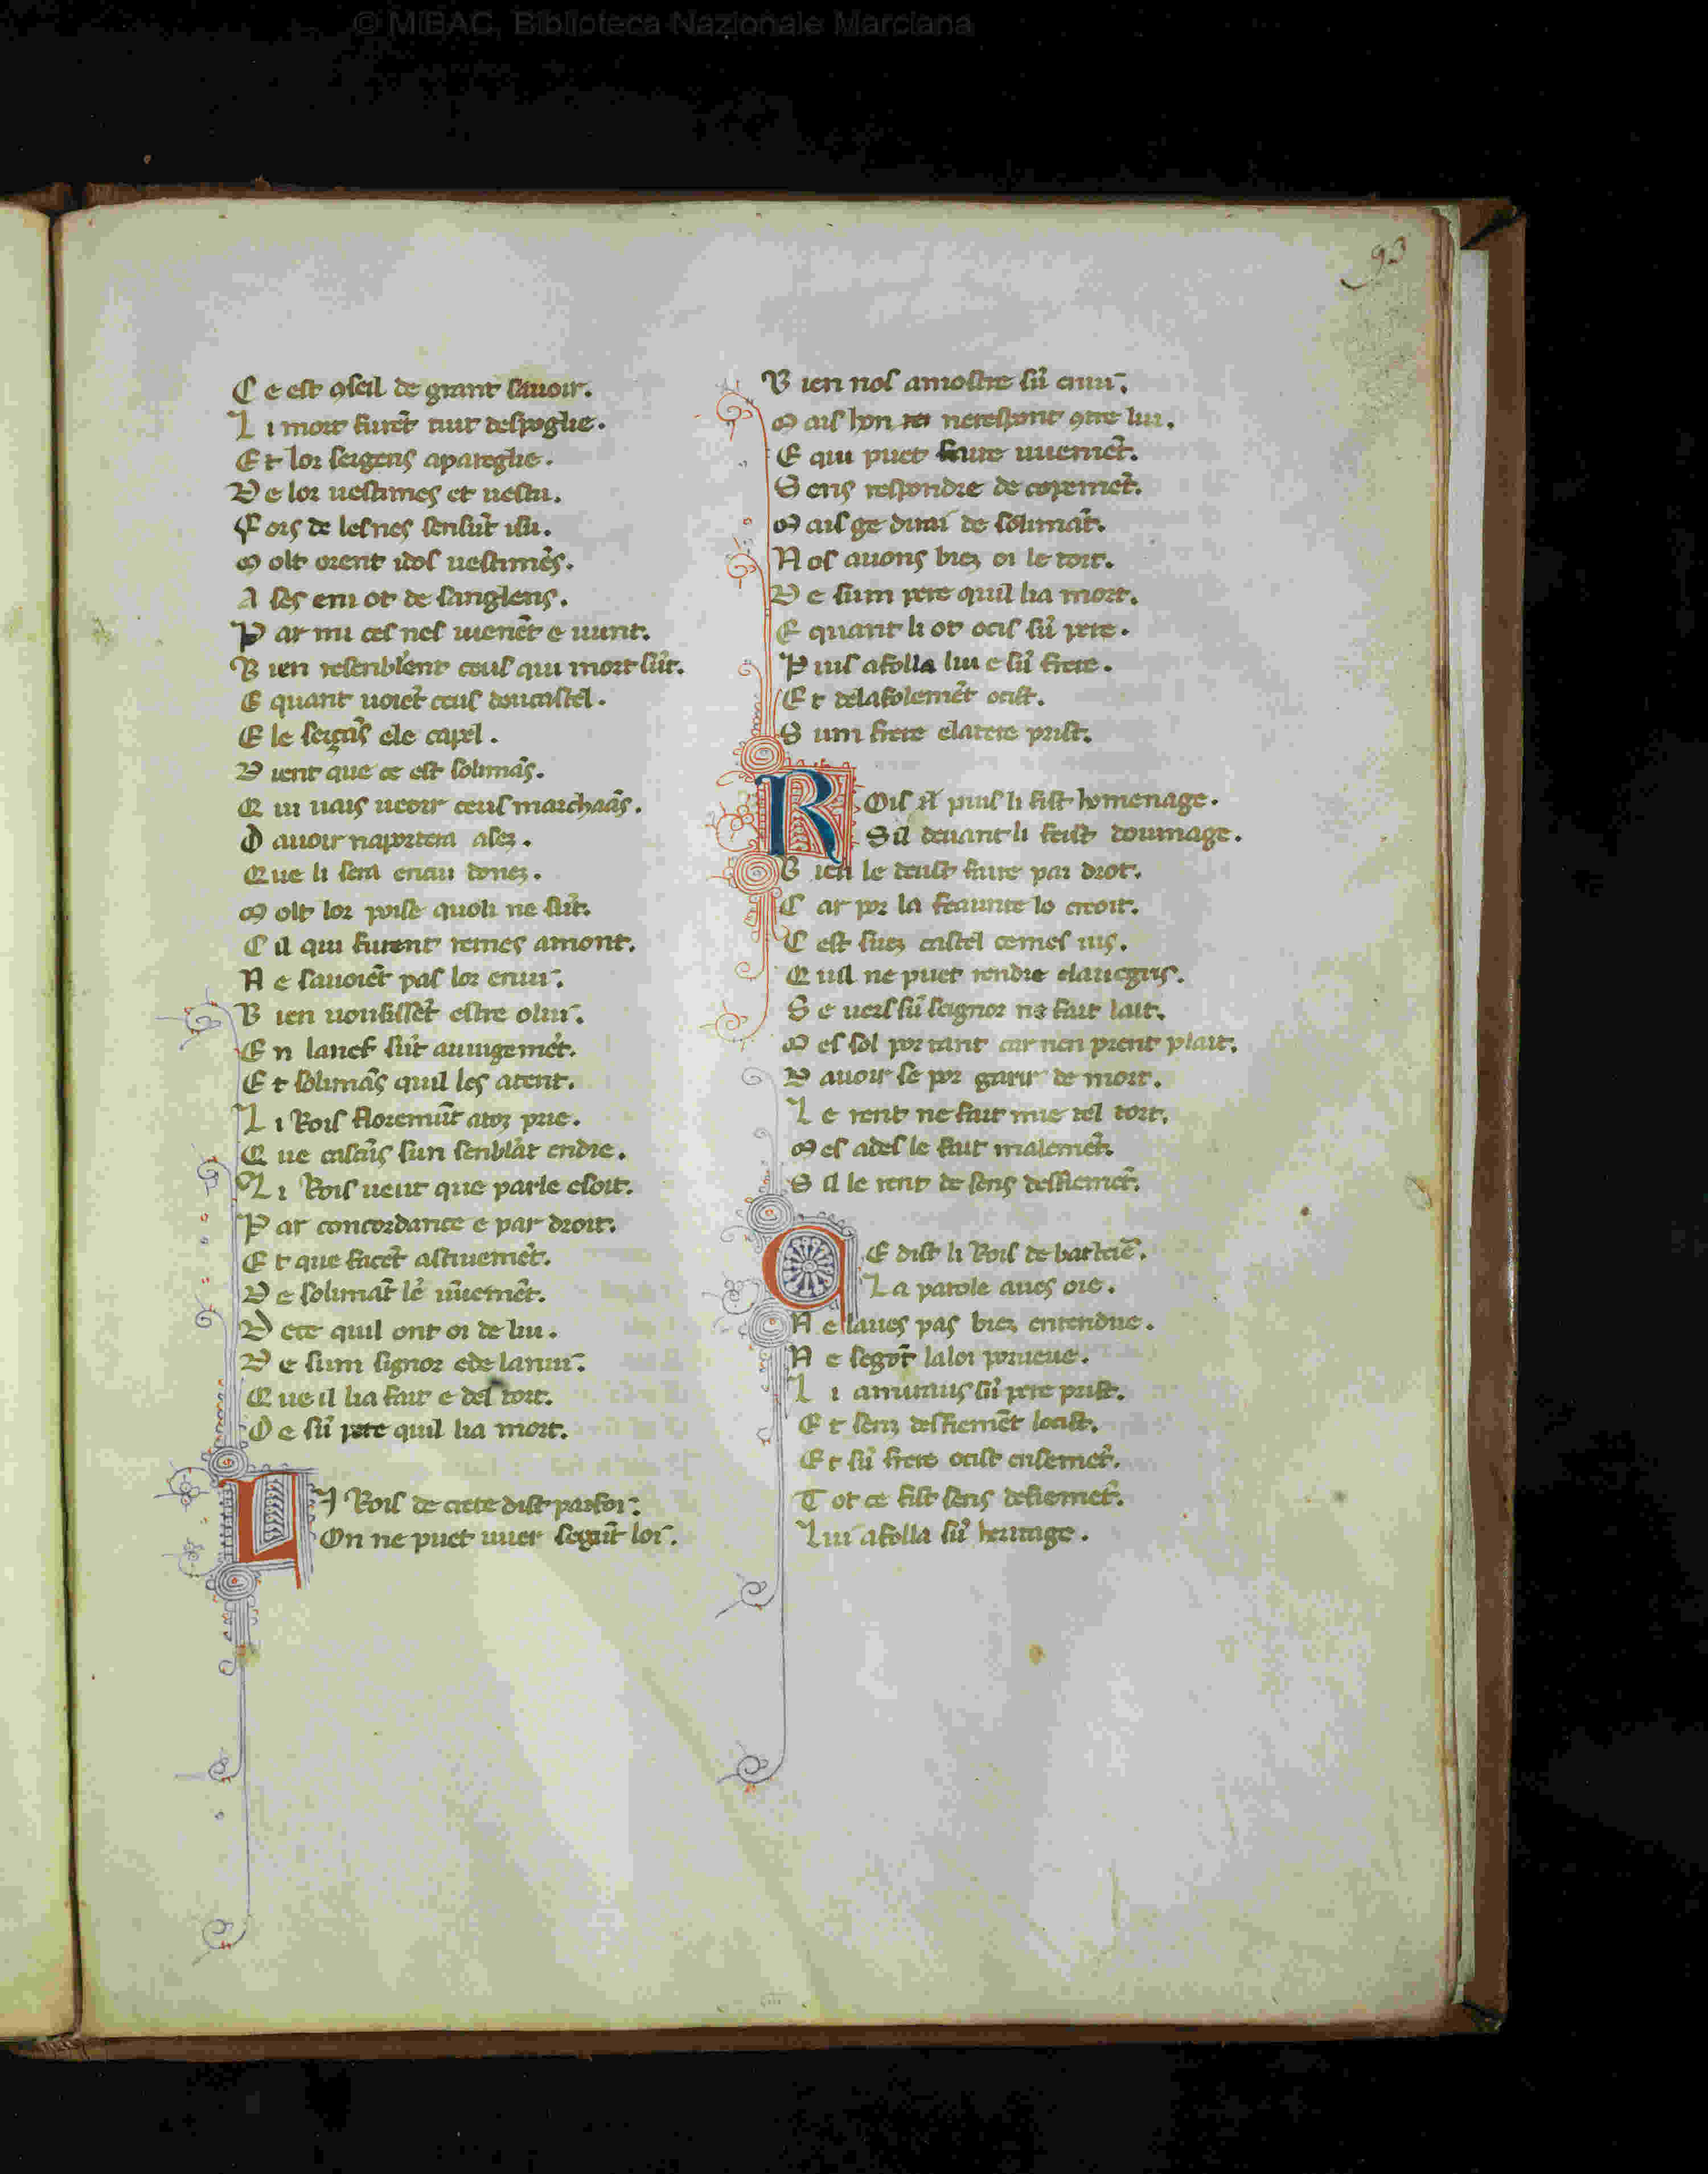 © MiBAC, Biblioteca Nazionale Marciana
93
C e est ꝯseil de grant sauoir.
L i mort furẽt tuit despoglie.
E t lor sergens apareglie.
D e lor uestimes et uestu.
F ors de les nes sensũt isu.
M olt orent itos uestimẽs.
A ses eni ot de sanglens.
P ar mi ces nes uienẽt e uunt.
B ien resenblent ceus qui mort sũt.
E quant uoiẽt ceus doucastel.
E le sergãs ele capel.
D ient que ce est solimãs.
Q ui uais ueoir ceus marchaãs.
D auoir naportera asez.
Que li sera enau donez.
M olt lor poise quoli ne sũt.
C il qui furent remes amont.
N e sauoiẽt pas lor enui.
B ien uousissẽt estre olui.
E n lanef sũt auuigemẽt.
E t solimãs quil les atent.
L i Rois floremũt atoz prie.
Q ue cascũs sun senblãt endie.
L i Rois ueut que parle esoit.
P ar concordance e par droit.
E t que facẽt astiuemẽt.
D e solimãt le uiuemẽt.
D ece quil ont oi de lui.
D e sum signor ede lanui.
Q ue il lia fait e del tort.
D e sũ pere quil lia mort.
L I Rois de crete dist parfoi.
On ne puet iuier segũt loi.
B ien nos amostre sũ enui.
M ais hon nerespont ꝯtre lui.
E qui puet faire uiuemẽt.
S ens respondre de coremẽt.
M ais ge dirai de solimãt.
N os auons biez oi le tort.
D e sum pere quil lia mort.
E quant li ot ocis sũ pere.
P uis afolla lui e sũ frere.
E t delafolemẽt ocist.
S um frere elatere prist.
R Ois il puis li fist homenage.
S il deuant li feist doumage.
B ien le deust faire par drot.
C ar por la feaunte lo creoit.
C est suez castel cemes uis.
Q uil ne puet rendre elauegus.
S e uers sũ seignor ne fait lait.
M es sol por tant car nen prent plait.
D auoir se por garir de mort.
L e rent ne fait mie tel tort.
M es ades le fait malemẽt.
S il le rent de sens desfiemẽt.
C E dist li Rois de barberiẽ.
L a parole aues oie.
N e laues pas biez entendue.
N e segõt laloi porueue.
L i amiraus sũ pere prist.
E t senz desfiemẽt locist.
E t sũ frere ocist ensemẽt.
T ot ce fist sens defiemẽt.
L ui afolla sũ heritage.